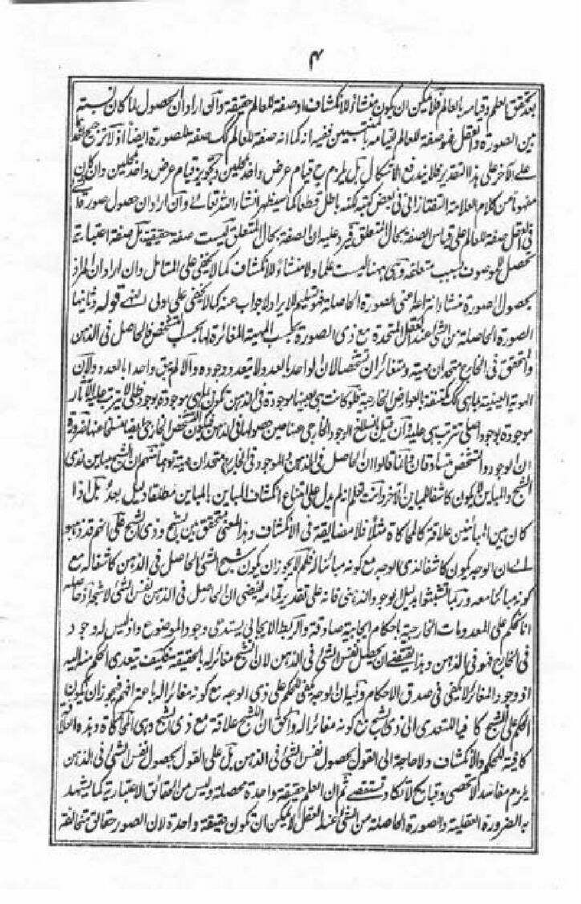 ۴
بعد تحقق العلم وقيامه بالعالم فلا يمكن ان يكون منشأ للانكشاف او صفة للعالم حقيقة وان اراد ان الحصول لما كان نسبة
بين الصورة والعقل فهو صفة للعالم لقيامه بالمنتسبين ففيه انه كما انه صفة للعالم كك صفة للصورة ايضا اذ لا ترجيح لاحد
على الآخر على هذا التقدير فلا يندفع الاشكال بل يلزم ح قيام عرض واحد بمحلين وتجويز قيام عرض واحد بمحلين وان كان
مفهوما من كلام العلامة التفتازاني في بعض كتبه لكنه باطل قطعا كما سيظهر انشاء الله تعالى وان اراد ان حصول صورة
في العقل صفة للعالم على قياس الصفة بحال المتعلق فيرد عليه ان الصفة بحال المتعلق ليست صفة حقيقة بل صفة اعتبارية
تحصل للموصوف بسبب متعلقه وهي ههنا ليست علما ولا منشأ للانكشاف كما لا يخفى على المتأمل وان اراد ان المراد
بحصول الصورة منشأ انتزاعه اعني الصورة الحاصلة فهو تسليم للايراد لا جواب عنه كما لا يخفى على اولي النهى قوله وثانيها
الصورة الحاصلة من الشئ عند العقل المتحدة مع ذي الصورة بحسب المهية المغائرة لها بحسب التشخص فالحاصل في الذهن
والمتحقق في الخارج متحدان مهية ومتغائران تشخصا لان الواحد بالعدد لا يتعدد وجوده والا لم يبق واحدا بالعدد ولان
الهوية العينية بما هي كك مكتنفة بالعوارض الخارجية فلو كانت هي بعينها موجودة في الذهن تكون بما هي موجودة بوجود ظلي لا يترتب عليه الآثار
موجودة بوجود اصلي تترتب هي عليه
ان الوجود والتشخص متساوقان ثم انما قالوا ان الحاصل في الذهن والموجود في الخارج متحدان مهية
الشبح والمباين لا يكون كاشفا لمباين الآخر وانت تعلم انه لم يدل على امتناع انكشاف المباين بالمباين مطلقا دليل بعد بل اذا
كان بين المبائنين علاقة كالمحاكاة مثلا فلا مضائقة في الانكشاف وهذا المعنى متحقق بين الشبح وذي الشبح على انهم قد ذهبوا
الى ان الوجه يكون كاشفا لذي الوجه مع كونه مبائنا له فلم لا يجوز ان يكون شبح الشئ الحاصل في الذهن كاشفا له مع
كونه مبائنا معه وربما تشبثوا بدليل الوجود الذهني فانه على تقدير تمامه يقتضي ان الحاصل في الذهن نفس الشئ لا شبحه اذ حاصله
انا نحكم على المعدومات الخارجية باحكام ايجابية صادقة والربط الايجابي يستدعي وجود الموضوع واذ ليس له وجود
في الخارج فهو في الذهن وهذا يقتضي ان يحصل نفس الشئ في الذهن لان الشبح مغائر له بالحقيقة فكيف يتعدى الحكم منه اليه
اذ وجود المغائر لا يكفي في صدق الاحكام وتبيان الوجه يكفي للحكم على ذي الوجه مع كونه مغائرا له باعترافهم فيجوز ان يكون
الحكم على الشبح كافيا للتعدي الى ذي الشبح مع كونه مغائرا له والحق ان للشبح علاقة مع ذي الشبح وهي المحاكاة وهذه العلاقة
كافية للحكم والانكشاف ولا حاجة الى القول بحصول نفس الشئ في الذهن بل على القول بحصول نفس الشئ في الذهن
يلزم مفاسد لا تحصى وقبائح لا تكاد تستقصى ثم ان العلم حقيقة واحدة محصلة وليس من الحقائق الاعتبارية كما يشهد
به الضرورة العقلية والصورة الحاصلة من الشئ عند العقل لا يمكن ان تكون حقيقة واحدة لان الصور حقائق متخالفة